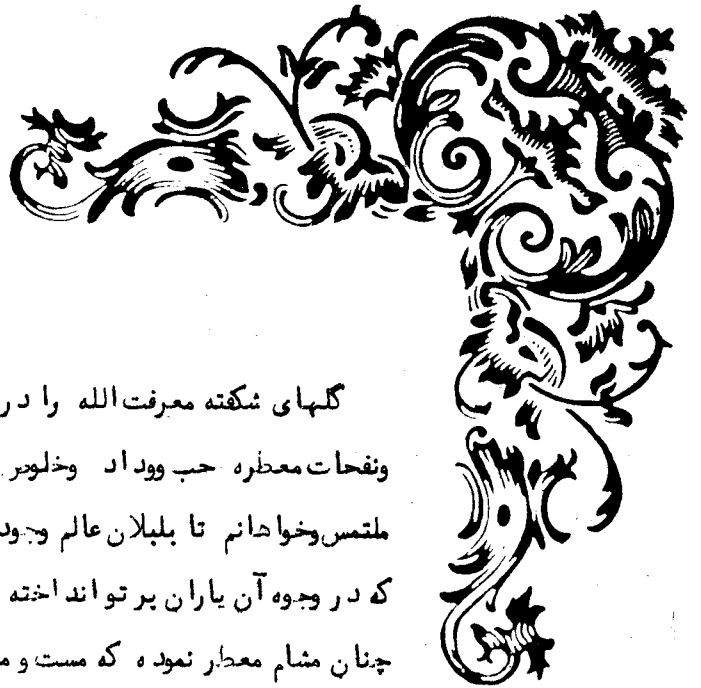 گلهای شکفته معرفت الله را در
ونفحات معطره حب ووداد وخلوص
ملتمس وخواهانم تا بلبلان عالم وجود
که در وجوه آن یاران پرتو انداخته
چنان مشام معطر نموده که مست و م